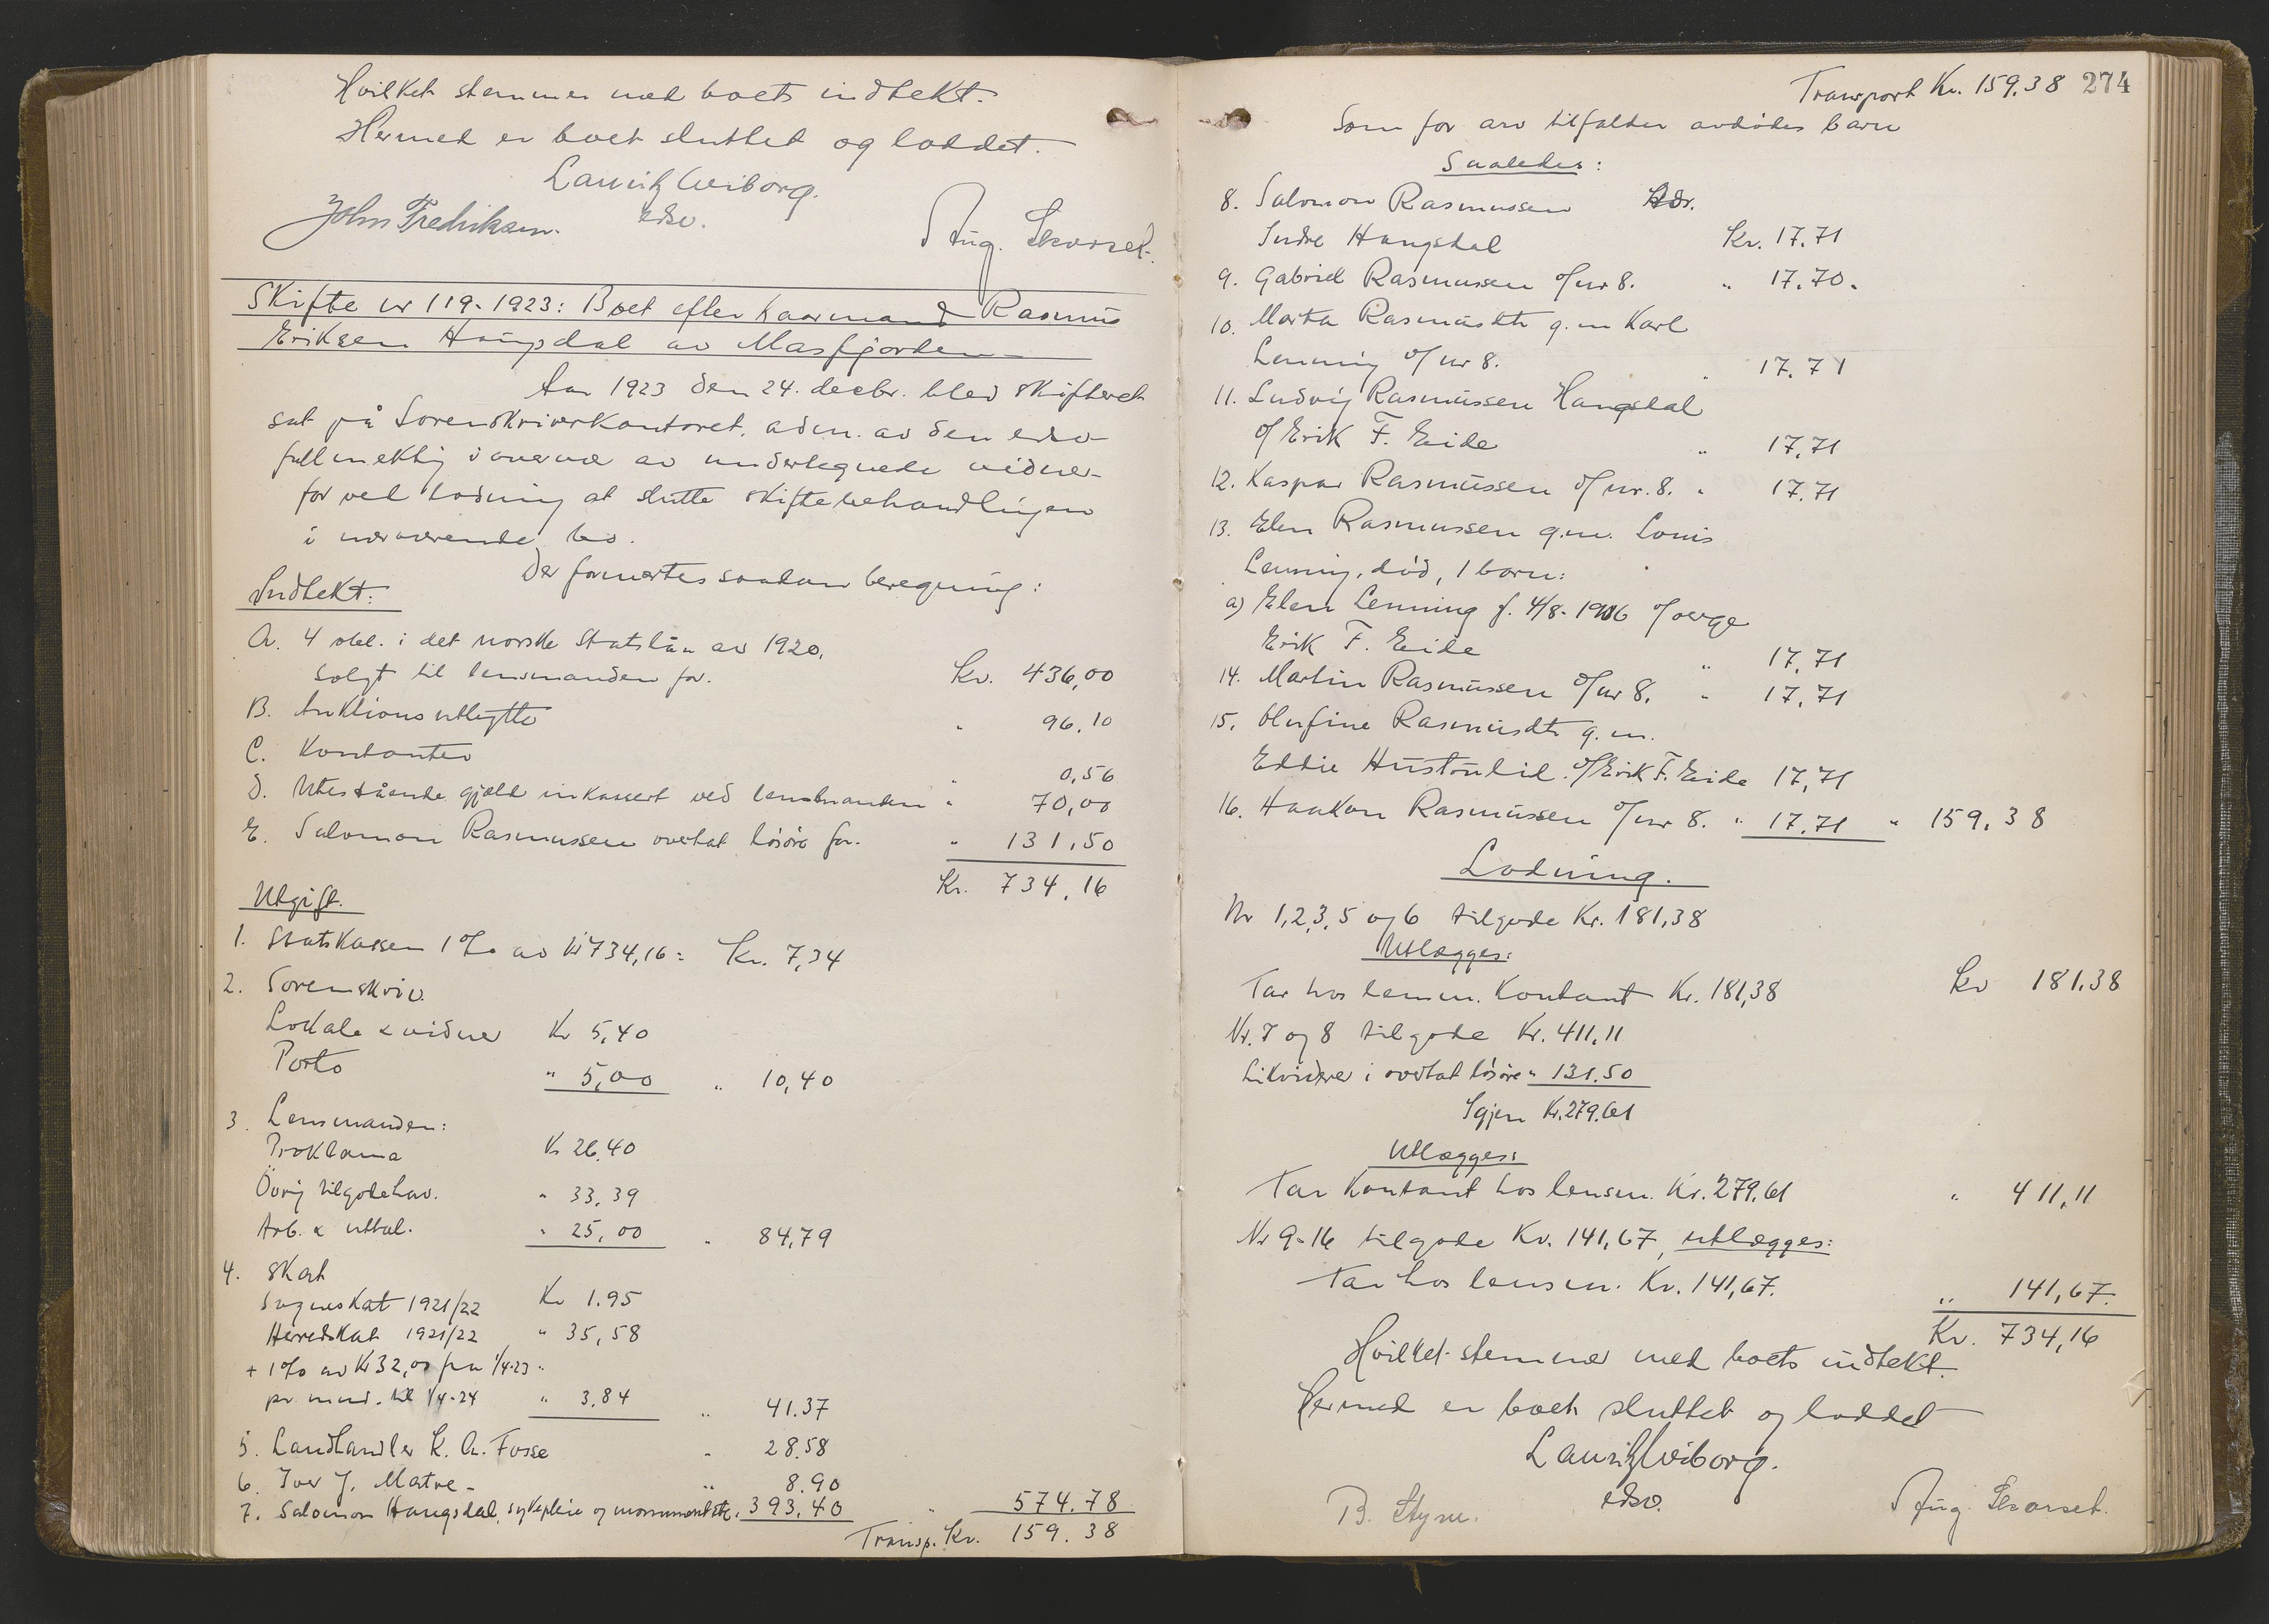 Hvilket stemmer med boets indtekt.
Hermed er boet sluttet og loddet.
Lauritz Wiborg.
edsv.
John Fredriksen.
Aug. Skorset.
Skifte nr 119-1923: Boet efter kaarmand Rasmus
Eriksen Haugsdal av Masfjorden
Aar 1923 den 24. decbr. blev skifteret
sat på Sorenskriverkontoret, adm. av den edsv
fullmektig i overvær av undertegnede vidner
for ved lodning at slutte skiftebehandlingen
i nærværende bo.
Der formertes saadan beregning:
Indtekt:
A. 4 obl. i det norske Statslån av 1920,
solgt til lensmanden for. Kr. 436,00
B. Auktionsutbytte " 96,10
C. Kontanter " 0,56
D. Utestående gjeld inkassert ved lensmanden " 70,00
E. Salomon Rasmussen overtat løsøre for. " 131,50
Kr. 734,16
Utgift.
1. Statskassen 1% av kr 734,16 = Kr. 7,34
2. Sorenskriv.
Lokale & vidner Kr 5,40
Porto " 5,00 " 10,40
3. Lensmanden:
Proklama Kr 26,40
Övrig tilgodehav. " 33,39
Arb. & utbet. " 25,00 " 84,79
4. Skat
Sogneskat 1921/22 Kr 1.95
Heredskat 1921/22 " 35,58
+ 1% av Kr 32,00 fra 1/4-23
pr. mnd. til 1/4-24 " 3,84 " 41.37
5. Landhandler K. A. Fosse " 28.58
6. Iver J. Matre " 8.90
7. Salomon Haugsdal, sykepleie og monument etc. 393,40 " 574.78
Transp. Kr. 159.38
Transport Kr. 159.38 274
Som for arv tilfalder avdödes barn
Saaledes:
8. Salomon Rasmussen
Indre Haugsdal Kr. 17.71
9. Gabriel Rasmussen o/ nr 8. " 17.70.
10. Marta Rasmusdtr g. m Karl
Lenning o/ nr 8. " 17.71
11. Ludvig Rasmussen Haugsdal
o/ Erik F. Eide " 17,71
12. Kaspar Rasmussen o/ nr. 8. " 17.71
13. Elen Rasmussen g.m. Louis
Lenning, död, 1 barn:
a) Elen Lenning f. 4/8-1906 o/ verge
Erik F. Eide " 17,71
14. Martin Rasmussen o/ nr 8. " 17,71
15. Olufine Rasmusdtr g. m.
Eddie Hustulid o/ Erik F. Eide 17,71
16. Haakon Rasmussen o/ nr 8. " 17.71 " 159.38
Lodning.
Nr 1,2,3,5 og 6 tilgode Kr. 181,38
Utlægges:
Tar hos lensm. Kontant Kr. 181,38 Kr 181.38
Nr. 7 og 8 tilgode Kr. 411,11
Likviderer i overtat løsøre " 131.50
Igjen Kr. 279.61
Utlægges:
Tar Kontant hos lensm. Kr. 279.61 " 411,11
Nr 9-16 tilgode Kr. 141,67, utlægges:
Tar hos lensm. Kr. 141,67. " 141,67.
Kr. 734,16
Hvilket stemmer med boets indtekt.
Hermed er boet sluttet og loddet
Lauritz Wiborg.
edsv.
B. Styve.
Aug. Skorset.